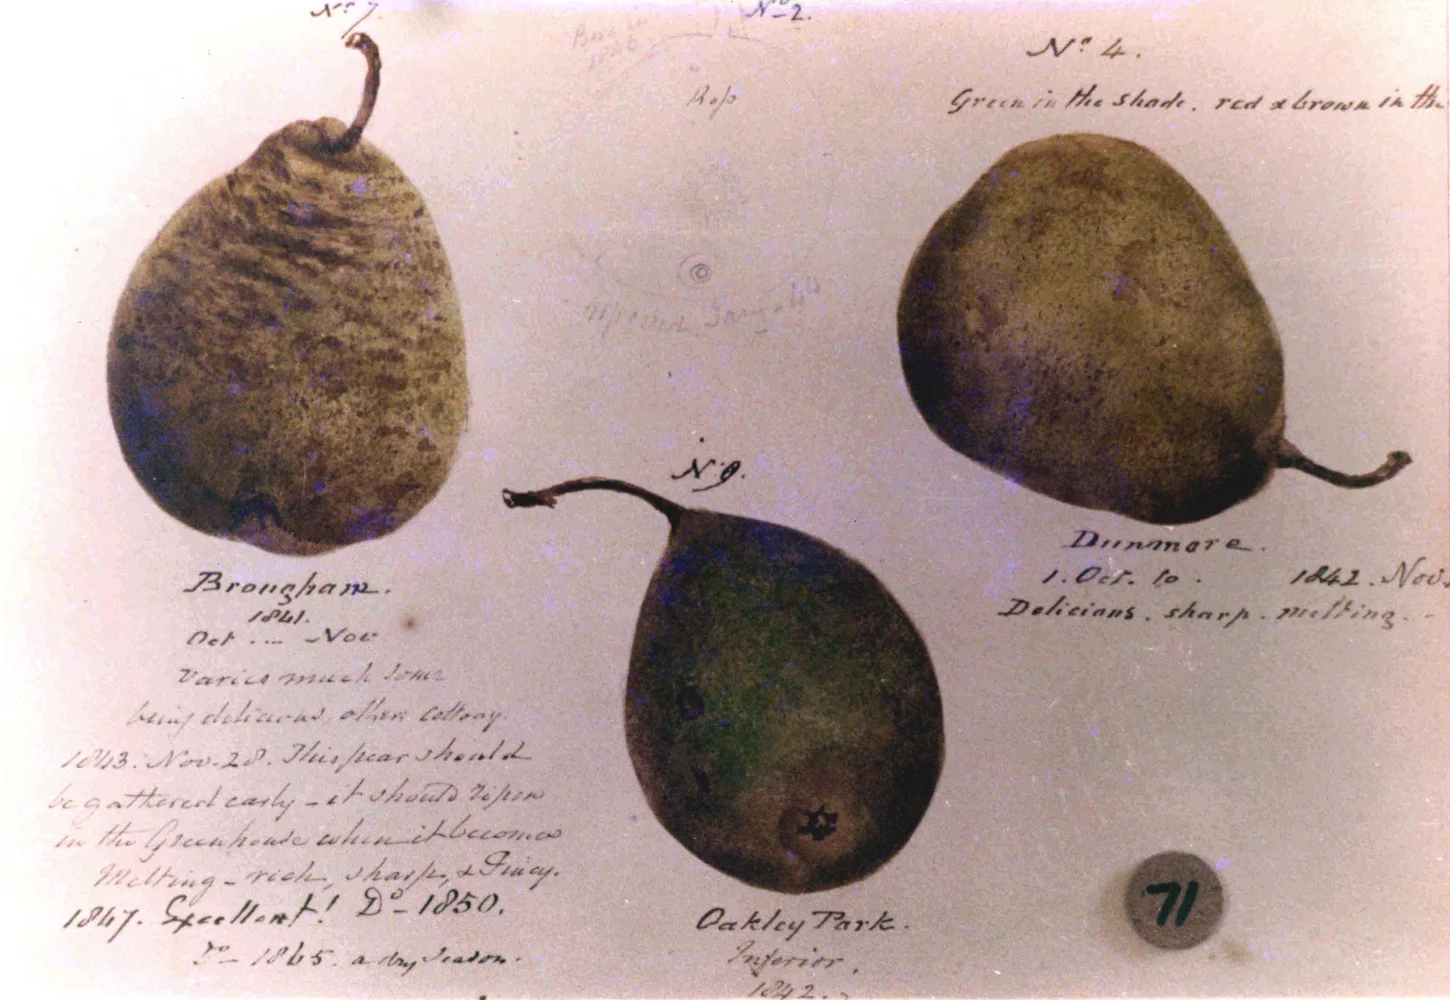 No. 7
No. 2.
Rop
ripened Jany. 44
No. 4.
Green in the shade. red & brown in the
Brougham.
1841.
Oct .... Nov
Varies much some
being delicious, others cottony.
1843. Nov. 28. This pear should
be gathered early - it should ripen
in the Greenhouse when it becomes
Melting - rich, sharp, & Juicy.
1847. Excellent! Do - 1850.
Do - 1865. a dry season.
No 9.
Oakley Park.
Inferior.
1842.
Dunmore.
1. Oct. to . 1842. Nov.
Delicious. sharp. melting. -
71